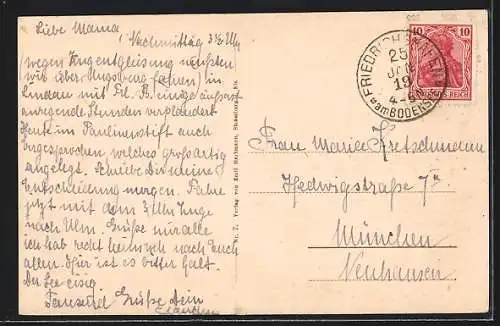 Liebe Mama,
Nachmittag 3½ Uhr
wegen Zugentgleisung mußten
wir über Augsburg fahren, in
Lindau mit Frl. B. einige äußerst
anregende Stunden verplaudert
Heute im Paulinenstift auch
vorgesprochen, welches großartig
angelegt. Schreibe Dir meine
Entscheidung morgen. Fahre
jetzt mit dem 3 Uhr Zuge
nach Ulm. Grüße mir alle
ich hab recht Heimweh nach Euch
allen Hier ist es bitter kalt.
Der See eisig.
Tausend Grüße Dein
Verlag von Emil Hartmann, Straßburg i. Els.
FRIEDRICHSHAFEN
25
JAN
19
4-5
am BODENSEE
10 10
REICH
Frau Marie Kretschmann
Hedwigstraße 7
München
Neuhausen